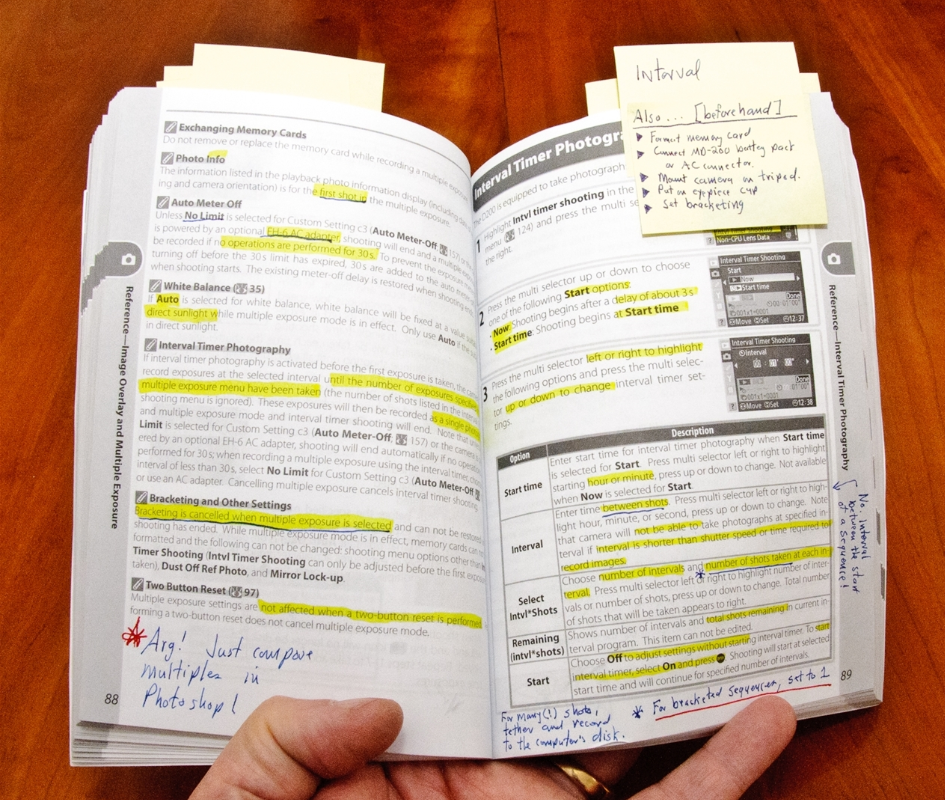 Exchanging Memory Cards
Do not remove or replace the memory card while recording a multiple
Photo Info
The information listed in the playback photo information display (including
ing and camera orientation) is for the first shot in the multiple exposure.
Auto Meter Off
Unless No Limit is selected for Custom Setting c3 (Auto Meter-Off 157)
is powered by an optional EH-6 AC adapter, shooting will end and a multiple
be recorded if no operations are performed for 30s. To prevent the exposure
turning off before the 30s limit has expired, 30s are added to the auto
when shooting starts. The existing meter-off delay is restored when shooting
White Balance ( 35)
If Auto is selected for white balance, white balance will be fixed at a value
direct sunlight while multiple exposure mode is in effect. Only use Auto if the
in direct sunlight.
Interval Timer Photography
If interval timer photography is activated before the first exposure is taken, the
record exposures at the selected interval until the number of exposures
multiple exposure menu have been taken (the number of shots listed in the
shooting menu is ignored). These exposures will then be recorded as a single
and multiple exposure mode and interval timer shooting will end. Note that
Limit is selected for Custom Setting c3 (Auto Meter-Off; 157) or the camera
ered by an optional EH-6 AC adapter, shooting will end automatically if no
performed for 30s; when recording a multiple exposure using the interval timer,
interval of less than 30s, select No Limit for Custom Setting c3 (Auto Meter-Off
or use an AC adapter. Cancelling multiple exposure cancels interval timer shooting.
Bracketing and Other Settings
Bracketing is cancelled when multiple exposure is selected and can not be restored
shooting has ended. While multiple exposure mode is in effect, memory cards can
formatted and the following can not be changed: shooting menu options other than
Timer Shooting (Intvl Timer Shooting can only be adjusted before the first exposure
taken), Dust Off Ref Photo, and Mirror Lock-up.
Two Button Reset ( 97)
Multiple exposure settings are not affected when a two-button reset is performed
forming a two-button reset does not cancel multiple exposure mode.
* Arg! Just compose
multiples in
Photoshop!
88
Reference—Image Overlay and Multiple Exposure
Interval
Also... [beforehand]
Format memory card
Connect MD-200 battery pack
or AC connector.
Mount camera on tripod.
Put on eyepiece cup
Set bracketing
Interval Timer Photogra
The D200 is equipped to take photograph
1 Highlight Intvl timer shooting in the
menu ( 124) and press the multi
the right.
Non-CPU Lens Data
2 Press the multi selector up or down to choose
one of the following Start options:
• Now: Shooting begins after a delay of about 3s
• Start time: Shooting begins at Start time
Interval Timer Shooting
Start
Now
Start time
Done
001x1=0001
Move Set 12:37
3 Press the multi selector left or right to highlight
the following options and press the multi selec-
tor up or down to change interval timer set-
tings.
Interval Timer Shooting
Interval
Done
001x1=0001
Move Set 12:38
Option Description
Start time Enter start time for interval timer photography when Start time
is selected for Start. Press multi selector left or right to highlight
starting hour or minute, press up or down to change. Not available
when Now is selected for Start.
Interval Enter time between shots. Press multi selector left or right to high-
light hour, minute, or second, press up or down to change. Note
that camera will not be able to take photographs at specified in-
terval if interval is shorter than shutter speed or time required to
record images.
Select intvl*Shots Choose number of intervals and number of shots taken at each in-
terval. Press multi selector left or right to highlight number of inter-
vals or number of shots, press up or down to change. Total number
of shots that will be taken appears to right.
Remaining (intvl*shots) Shows number of intervals and total shots remaining in current in-
terval program. This item can not be edited.
Start Choose Off to adjust settings without starting interval timer. To start
interval timer, select On and press. Shooting will start at selected
start time and will continue for specified number of intervals.
For many(!) shots,
tether and record
to the computer's disk.
* For bracketed sequences, set to 1
89
Reference—Interval Timer Photography
No, interval
between the start
of a sequence!